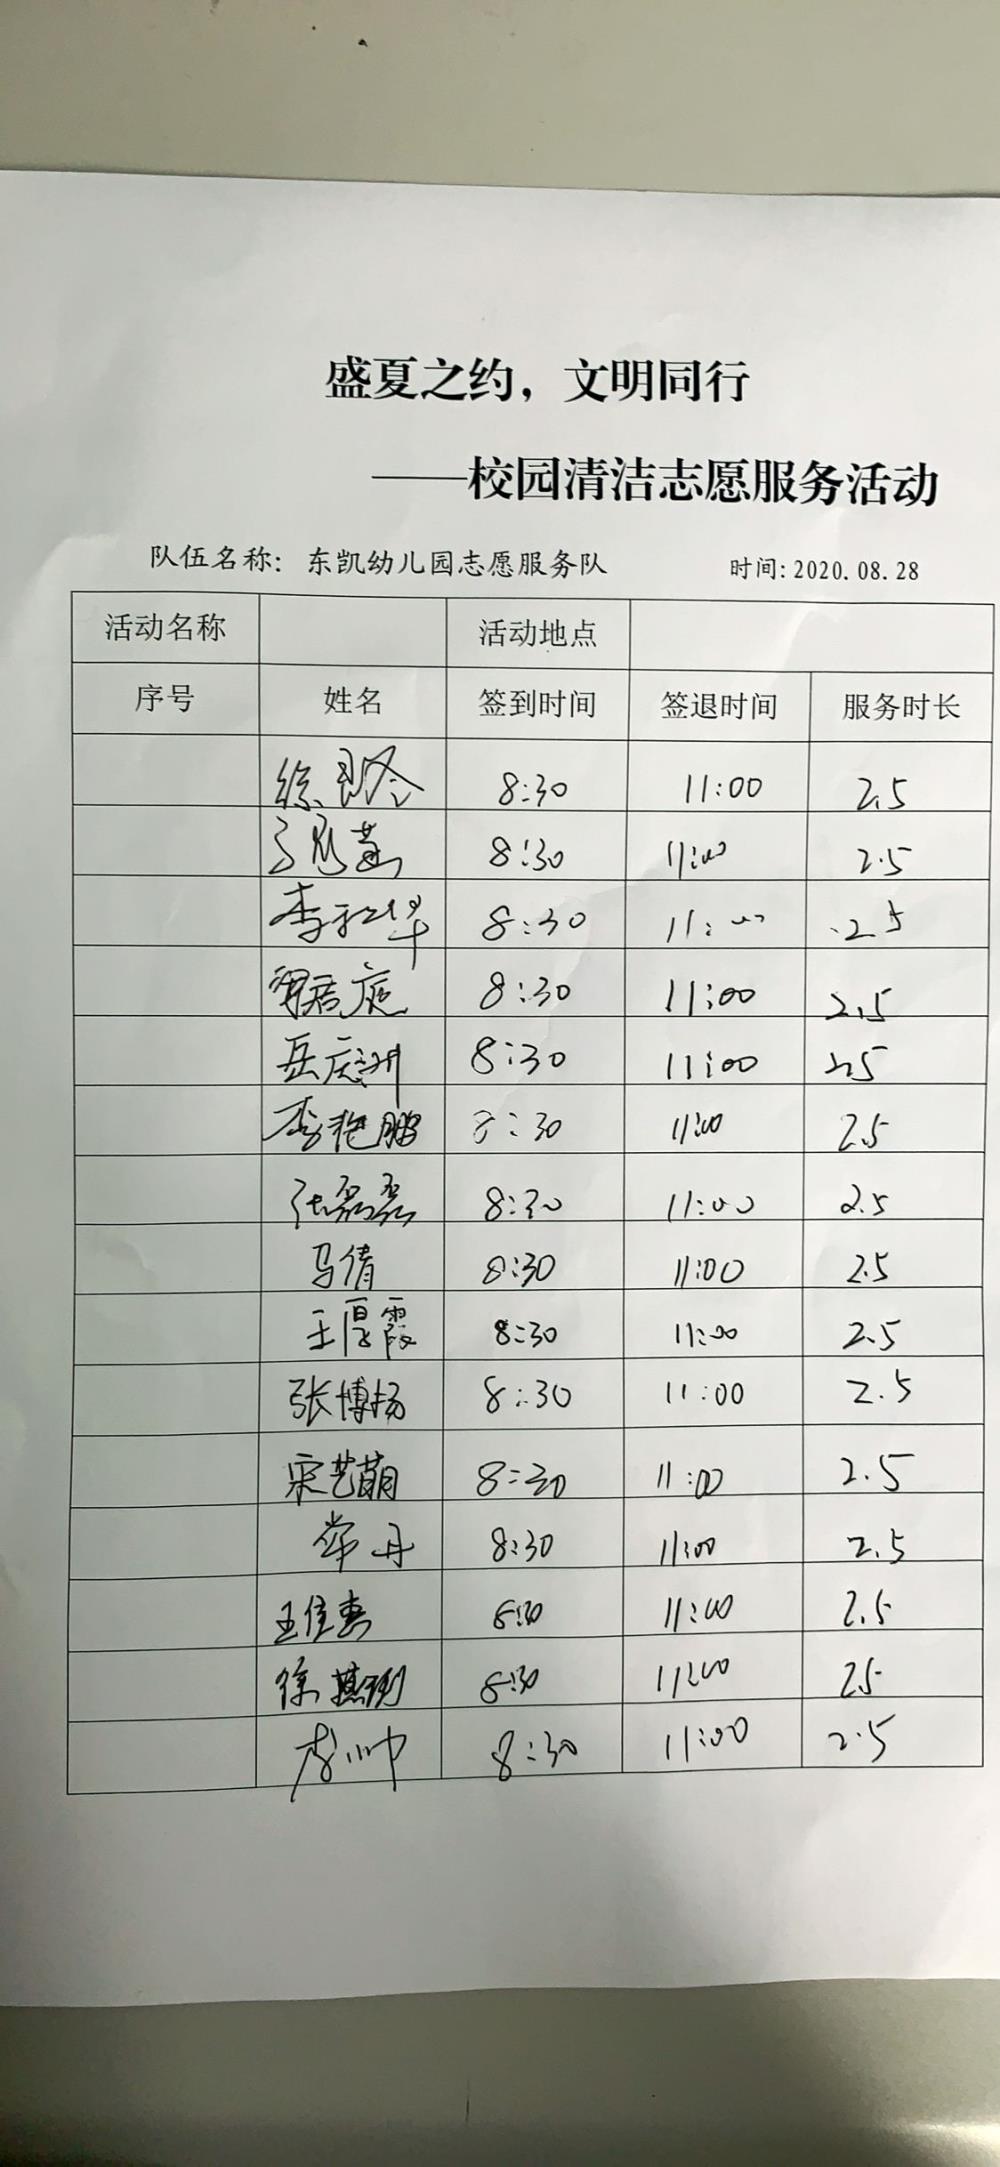 盛夏之约，文明同行
——校园清洁志愿服务活动
队伍名称：东凯幼儿园志愿服务队 时间：2020.08.28
活动名称 活动地点
序号 姓名 签到时间 签退时间 服务时长
徐 8:30 11:00 2.5
8:30 11:00 2.5
李红华 8:30 11:00 2.5
8:30 11:00 2.5
岳庆洲 8:30 11:00 2.5
李艳鹏 8:30 11:00 2.5
张磊磊 8:30 11:00 2.5
马倩 8:30 11:00 2.5
王厚霞 8:30 11:00 2.5
张博扬 8:30 11:00 2.5
宋艺萌 8:30 11:00 2.5
常丹 8:30 11:00 2.5
王佳惠 8:30 11:00 2.5
徐 8:30 11:00 25
李帅 8:30 11:00 2.5